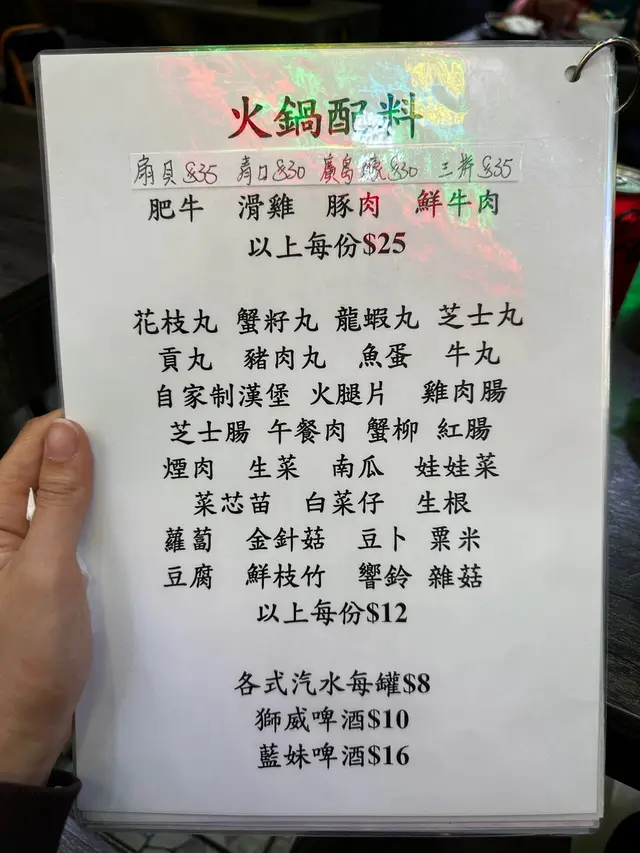 火鍋配料
扇貝$35 青口$30 廣島蠔$30 三拼$35
肥牛 滑雞 豚肉 鮮牛肉
以上每份$25
花枝丸 蟹籽丸 龍蝦丸 芝士丸
貢丸 豬肉丸 魚蛋 牛丸
自家制漢堡 火腿片 雞肉腸
芝士腸 午餐肉 蟹柳 紅腸
煙肉 生菜 南瓜 娃娃菜
菜芯苗 白菜仔 生根
蘿蔔 金針菇 豆卜 粟米
豆腐 鮮枝竹 響鈴 雜菇
以上每份$12
各式汽水每罐$8
獅威啤酒$10
藍妹啤酒$16